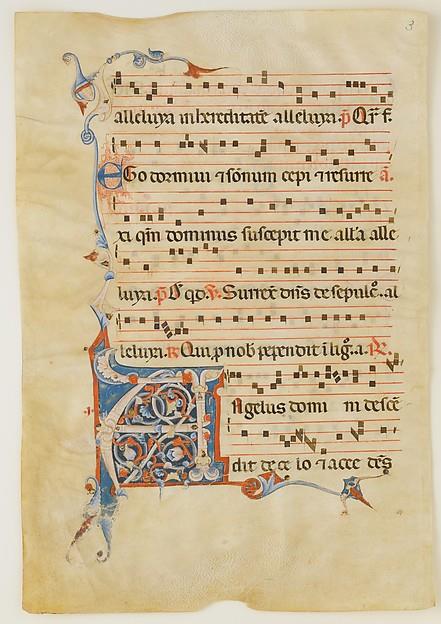 3
alleluya in hereditatē alleluya. p̄ Qr̄ f.
EGo dormiui ⁊ sōnum cepi ⁊ resurre ā.
xi qm̄ dominus suscepit me all'a alle
luya. p̄ qd. ℣. Surrex̄ dn̄s de sepulc̄. al
leluya. ℟ Qui ꝓ nob̄ pependit ī liḡ. a. ℟.
Angelus domi ni descē
dit de ce lo ⁊ acce dēs